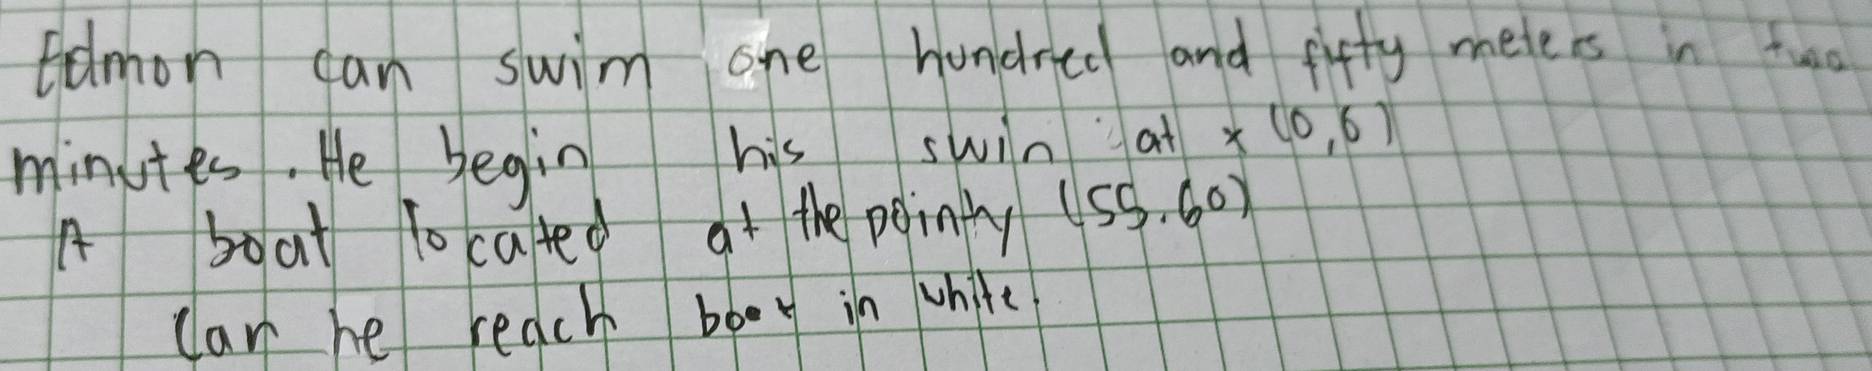 Edmon can swim one hundred and fifty meters in two
minutes. He begin his swin at x (0,6)
A boat located at the pointy (55.60)
Can he reach boat in white